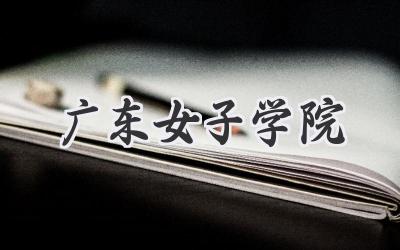 广东女子学院